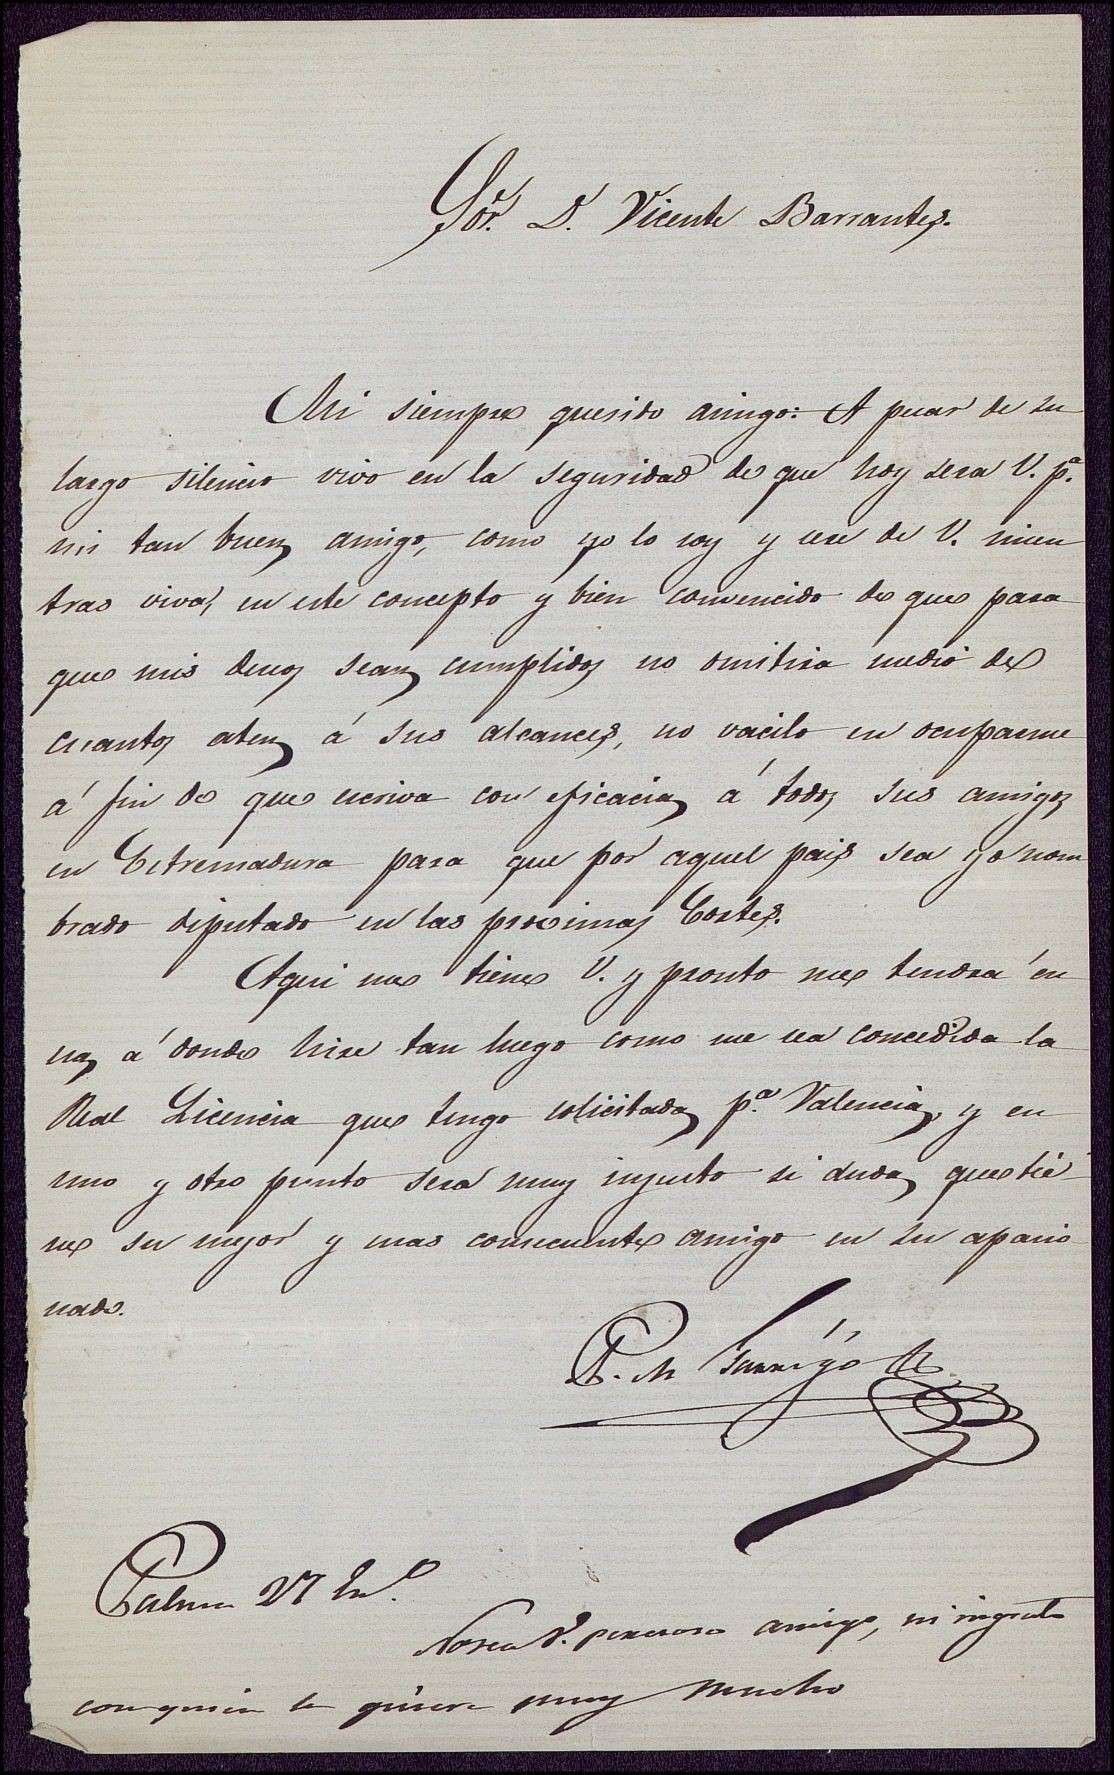 Sor. D. Vicente Barrantes.
Mi siempre querido amigo: A pesar de su
largo silencio vivo en la seguridad de que hoy sera V. pª.
mi tan buen amigo, como yo lo soy y sere de V. mien
tras viva; en este concepto y bien convencido de que para
que mis deseos sean cumplidos no omitira medio de
cuantos aten á sus alcances, no vacilo en ocuparme
á fin de que escriva con eficacia á todos sus amigos
en Estremadura para que por aquel pais sea yo nom
brado diputado en las proximas Cortes.
Aqui me tiene V. y pronto me tendra en
á donde hire tan luego como me sea concedida la
Real Licencia que tengo solicitada pª. Valencia, y en
uno y otro punto sera muy injusto si duda que tie
ne su mejor y mas consecuente amigo en su apasio
nado.
P. M Garrigó
Palma 27 En.º
No sea V. perezoso amigo, ni ingrato
con quien le quiere muy mucho